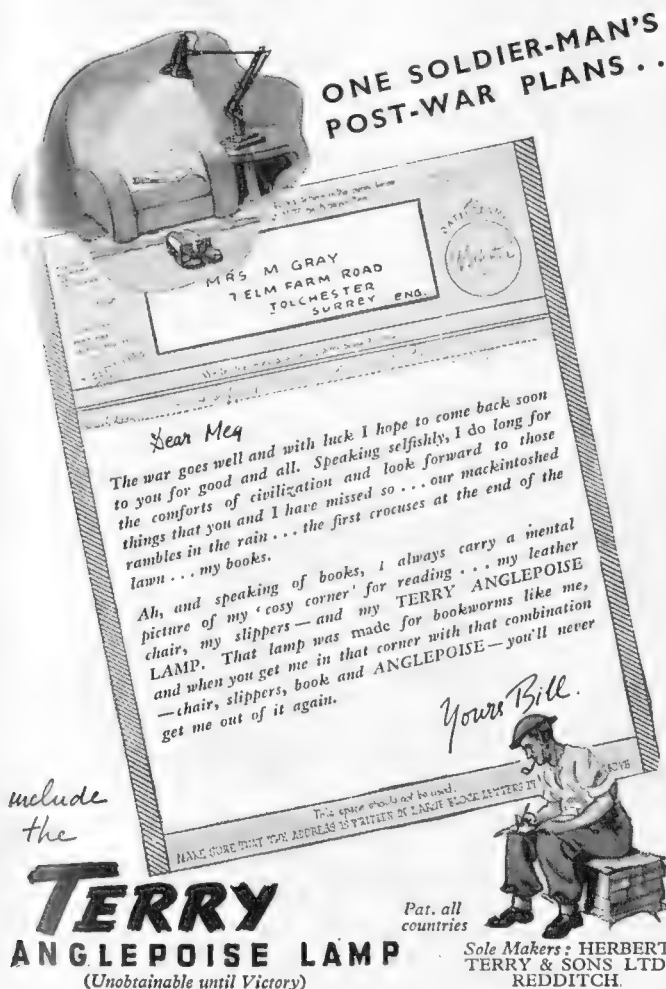 ONE SOLDIER-MAN'S
POST-WAR PLANS . .
MRS M GRAY
7 ELM FARM ROAD
TOLCHESTER
SURREY ENG.
Dear Meg
The war goes well and with luck I hope to come back soon
to you for good and all. Speaking selfishly, I do long for
the comforts of civilization and look forward to those
things that you and I have missed so . . . our mackintoshed
rambles in the rain . . . the first crocuses at the end of the
lawn . . . my books.
Ah, and speaking of books, I always carry a mental
picture of my 'cosy corner' for reading . . . my leather
chair, my slippers — and my TERRY ANGLEPOISE
LAMP. That lamp was made for bookworms like me,
and when you get me in that corner with that combination
—chair, slippers, book and ANGLEPOISE—you'll never
get me out of it again.
Yours Bill.
This space should not be used.
MAKE SURE THAT THE ADDRESS IS WRITTEN IN LARGE BLOCK LETTERS
include
the
TERRY
ANGLEPOISE LAMP
(Unobtainable until Victory)
Pat. all
countries
Sole Makers: HERBERT
TERRY & SONS LTD
REDDITCH.